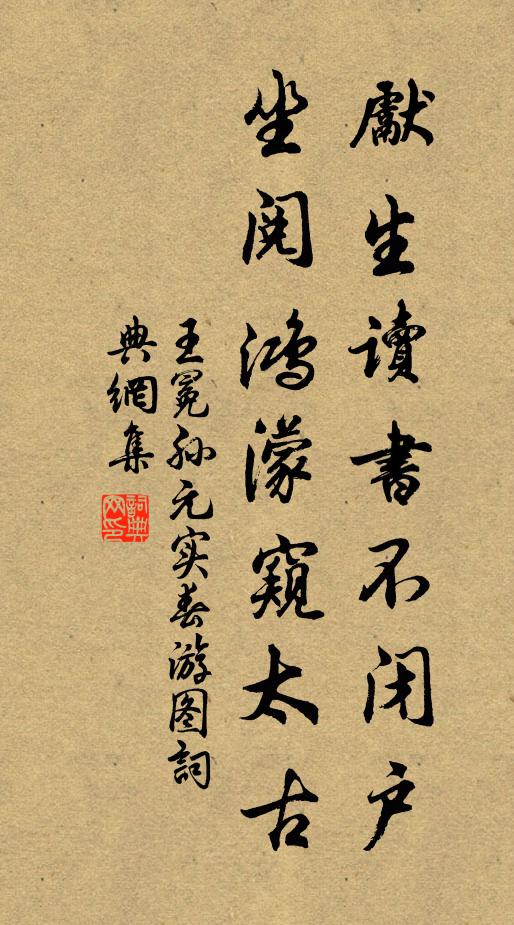 獻生讀書不闭户
坐阅鸿濛窺太古
王冕孙元实春游图詞
典網集
詞典网印